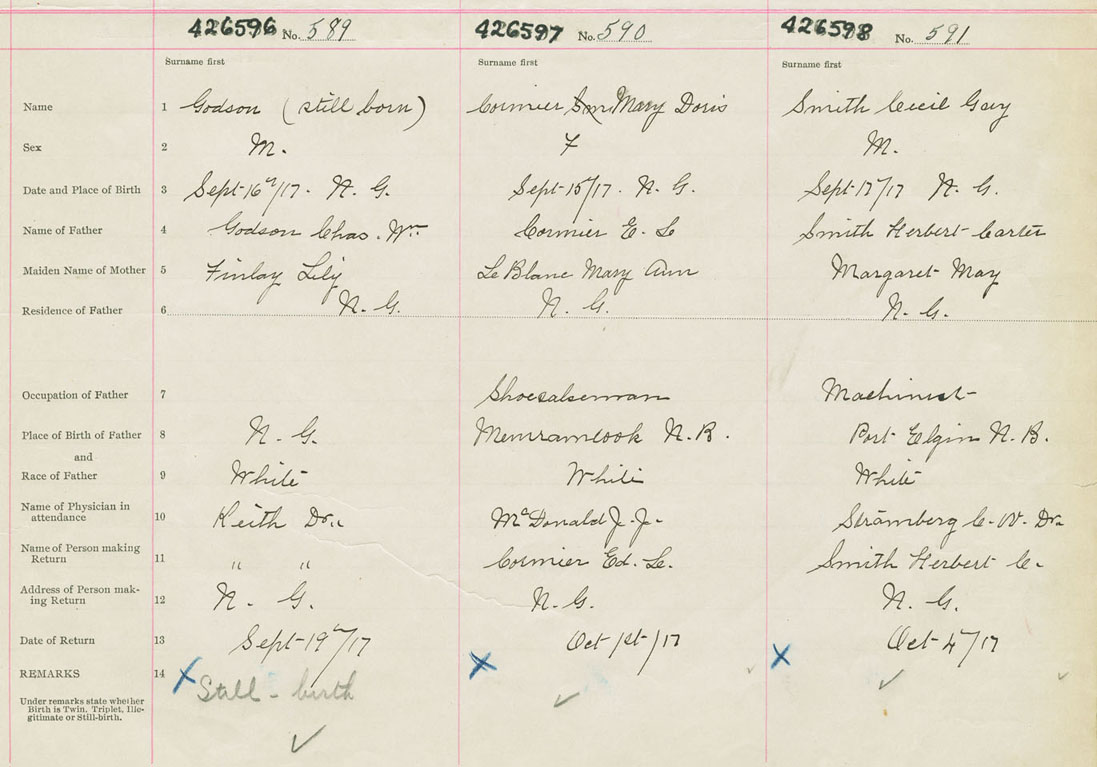 426596 No. 589 426597 No. 590 426598 No. 591
Surname first Surname first Surname first
Name 1 Godson (still born) Cormier Mary Doris Smith Cecil Gay
Sex 2 M. F M.
Date and Place of Birth 3 Sept 16th/17. N. G. Sept 15/17. N. G. Sept 17/17 N. G.
Name of Father 4 Godson Chas. Wm. Cormier E. L Smith Herbert Carter
Maiden Name of Mother 5 Finlay Lily Le Blanc Mary Ann Margaret May
Residence of Father 6 N. G. N. G. N. G.
Occupation of Father 7 Shoesalseman Machinist
Place of Birth of Father 8 N. G. Memramcook N. B. Port Elgin N. B.
and
Race of Father 9 White White White
Name of Physician in
attendance 10 Keith Dr. McDonald J. J. Stramberg C. W. Dr.
Name of Person making
Return 11 " " Cormier Ed. L. Smith Herbert C.
Address of Person mak-
ing Return 12 N. G. N. G. N. G.
Date of Return 13 Sept 19th/17 Oct 1st/17 Oct 4/17
REMARKS 14 X Still - birth X X
Under remarks state whether
Birth is Twin, Triplet, Ille-
gitimate or Still-birth.